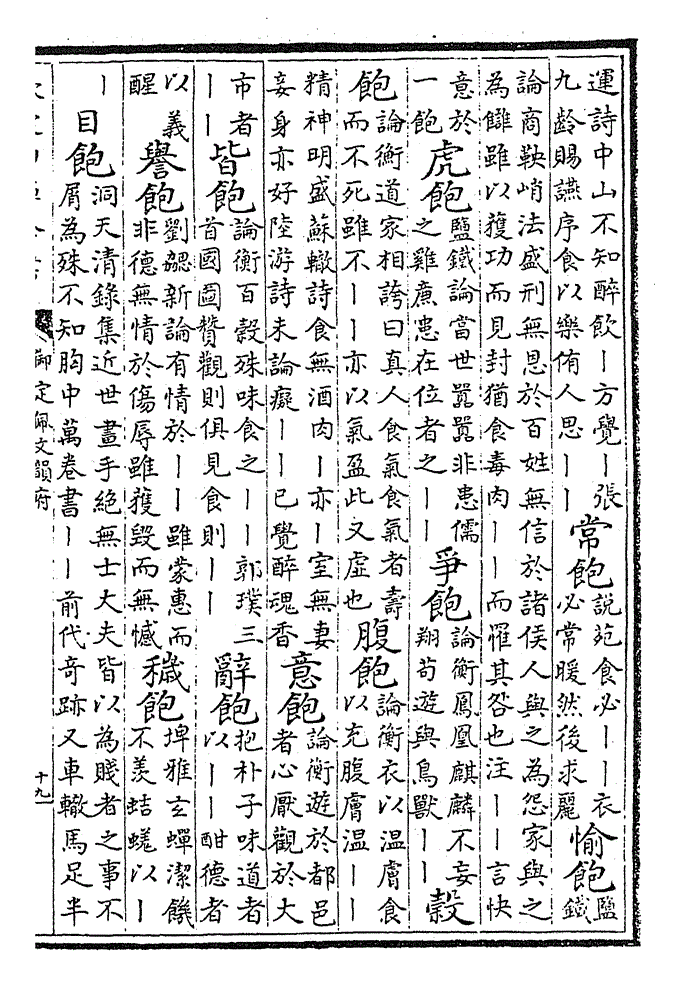 運詩中山不知醉飲丨方覺丨張
九齡賜讌序食以樂侑人思丨丨
常飽
說苑食必丨丨衣
必常暖然後求麗
愉飽
鹽
鐵
論商鞅峭法盛刑無恩於百姓無信於諸侯人與之為怨家與之
為讎雖以獲功而見封猶食毒肉丨丨而罹其咎也注丨丨言快
意於
一飽
虎飽
鹽鐵論當世囂囂非患儒
之雞廉患在位者之丨丨
爭飽
論衡鳳凰麒麟不妄
翔苟遊與鳥獸丨丨
穀
飽
論衡道家相誇曰真人食氣食氣者壽
而不死雖不丨丨亦以氣盈此又虛也
腹飽
論衡衣以温膚食
以充腹膚温丨丨
精神明盛蘇轍詩食無酒肉丨亦丨室無妻
妾身亦好陸游詩未論癡丨丨已覺醉魂香
意飽
論衡遊於都邑
者心厭觀於大
市者
丨丨
皆飽
論衡百穀殊味食之丨丨郭璞三
首國圖贊觀則俱見食則丨丨
辭飽
抱朴子味道者
以丨丨酣德者
以義
醒
譽飽
劉勰新論有情於丨丨雖蒙惠而
非德無情於傷辱雖獲毀而無憾
穢飽
埤雅玄蟬潔饑
不羨蛣蜣以丨
丨
目飽
洞天清錄集近世畫手絕無士大夫皆以為賤者之事不
屑為殊不知胸中萬卷書丨丨前代奇跡又車轍馬足半
御定佩文韻府
十九